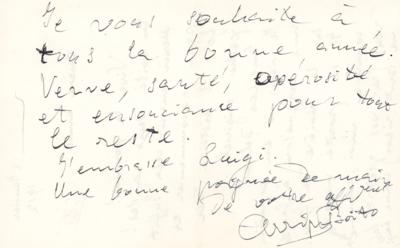 Je vous souhaite à
tous la bonne année.
Verve, santé, opérosité
et ensouciance pour tout
le reste.
J'embrasse Luigi.
Une bonne poignée de main
de votre affmé
Arrigo Boito